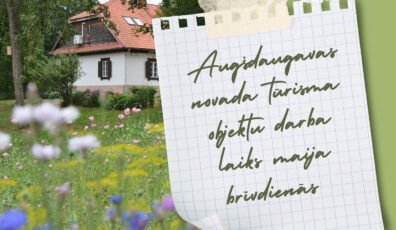 Augšdaugavas
novada tūrisma
objektu darba
laiks maija
brīvdienās